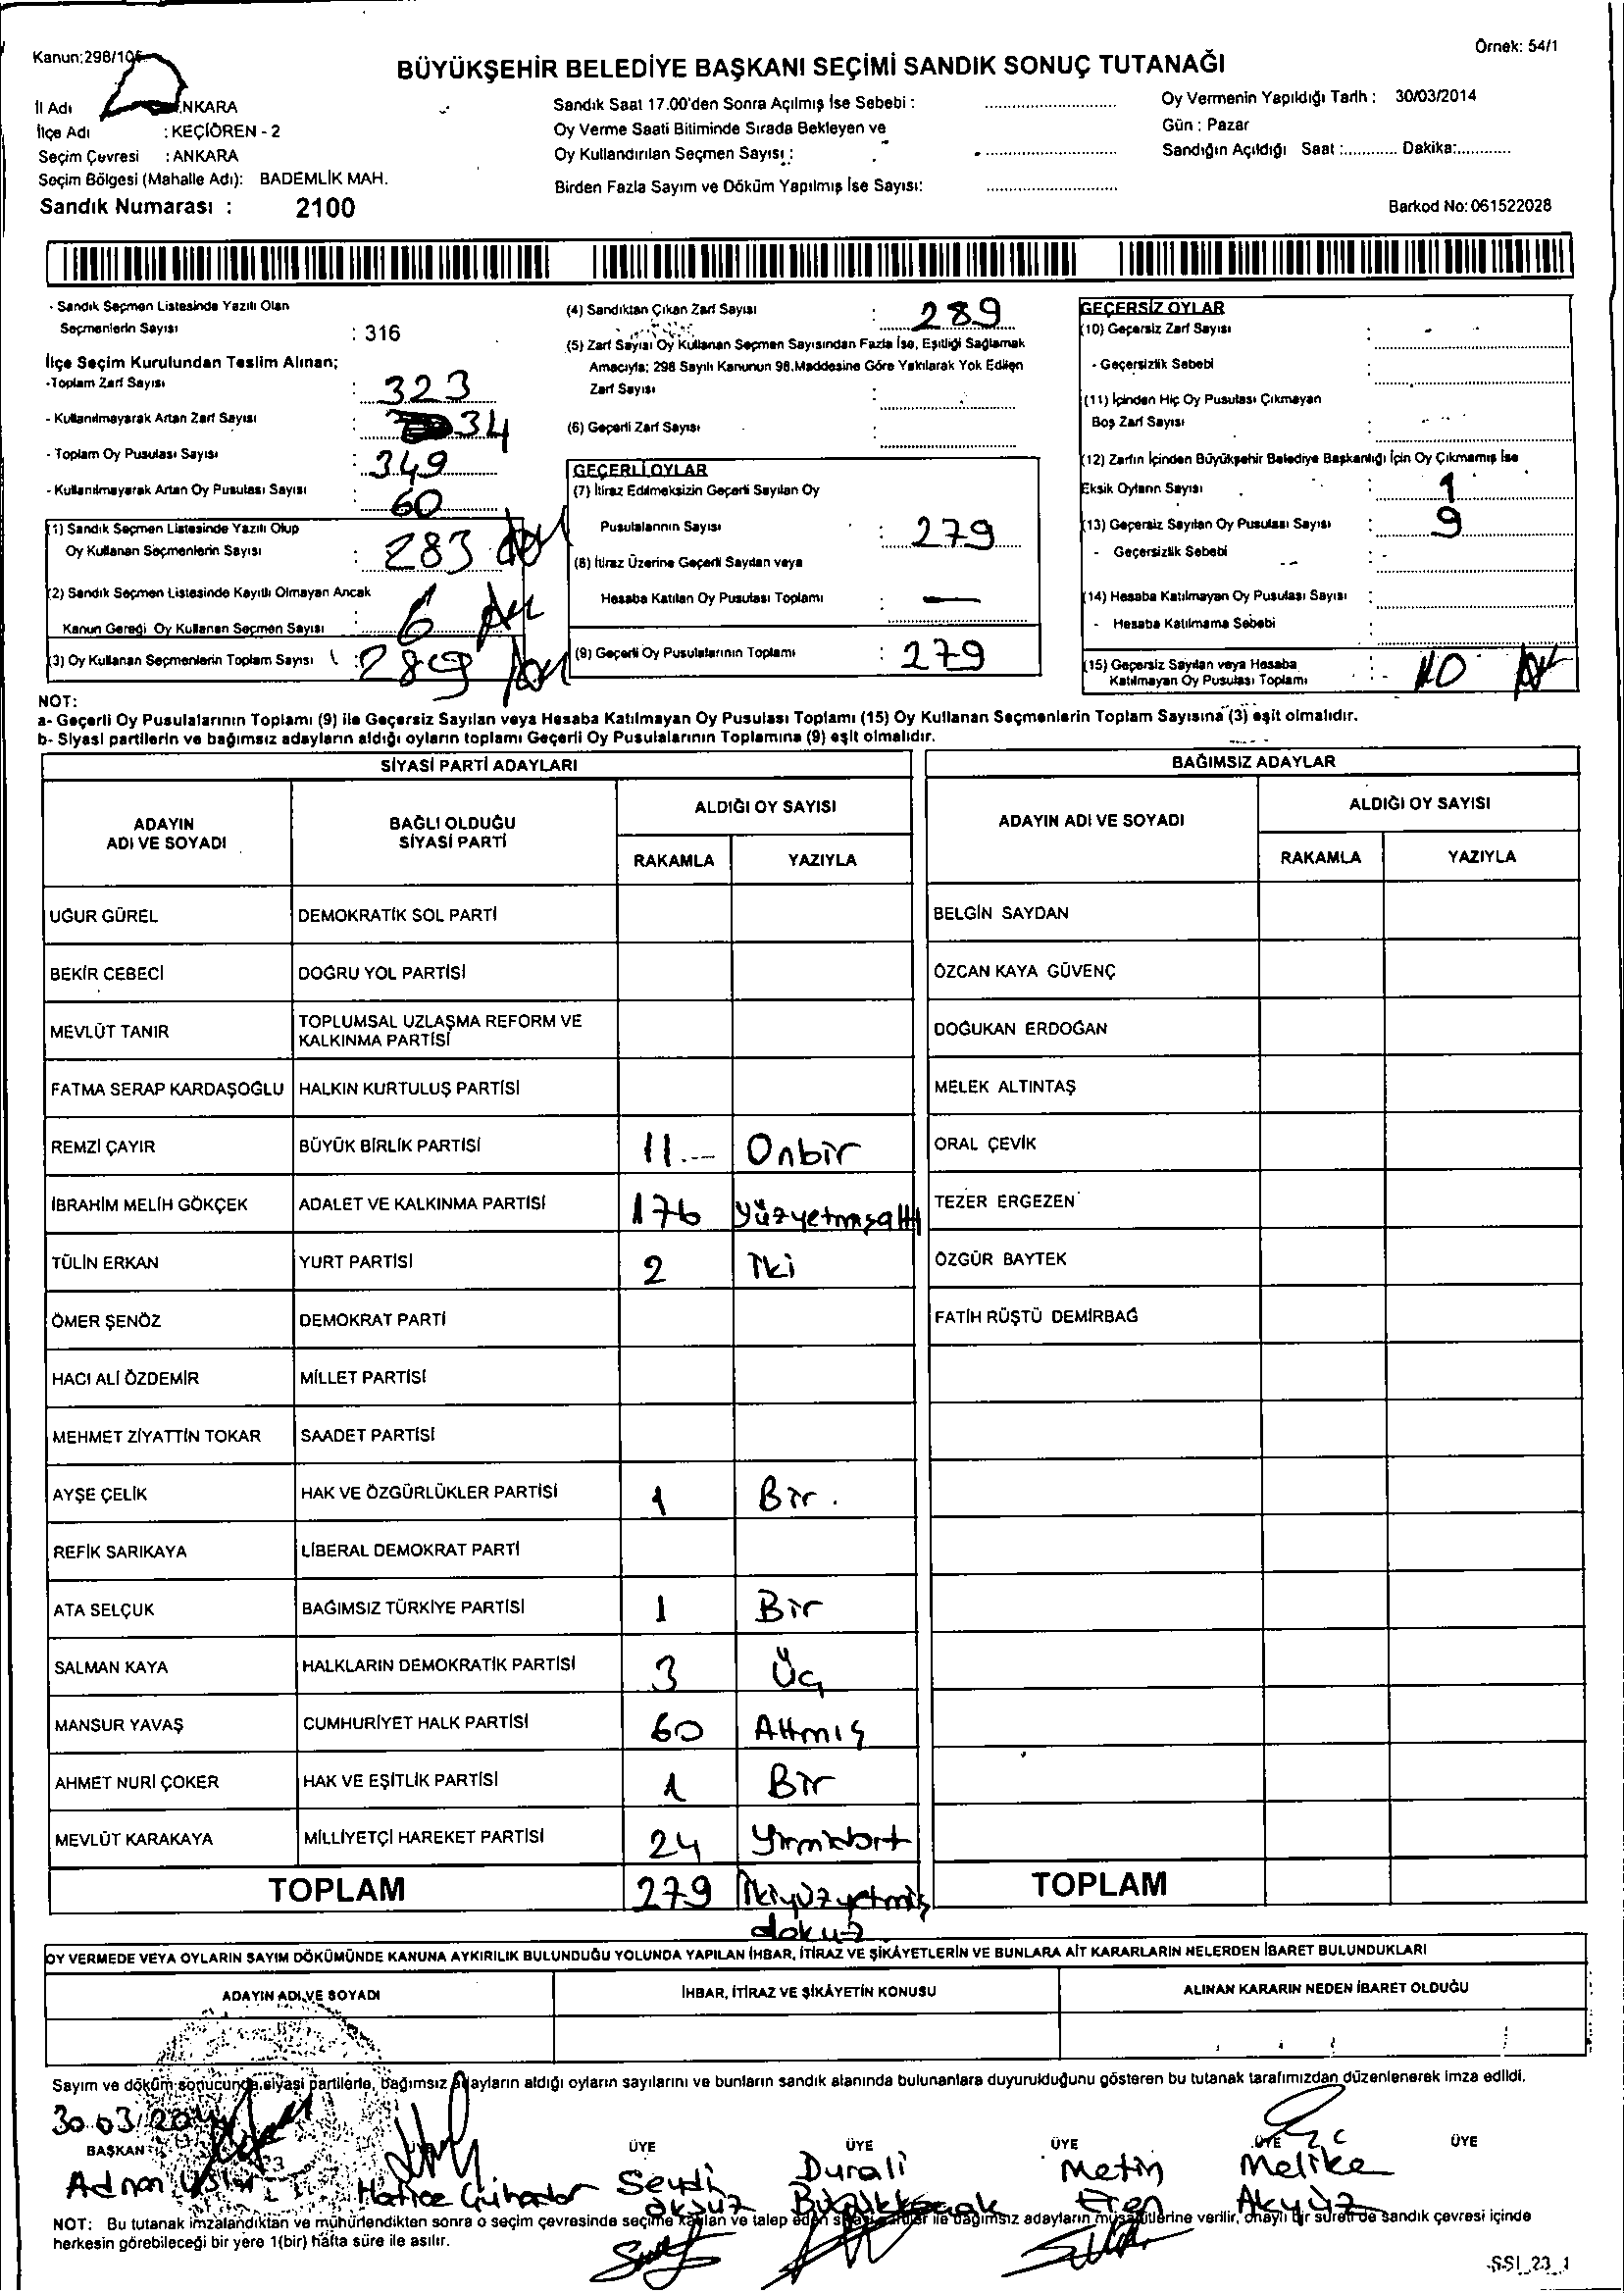 Kanun:298/105
Örnek: 54/1
BÜYÜKŞEHİR BELEDİYE BAŞKANI SEÇİMİ SANDIK SONUÇ TUTANAĞI
İl Adı NKARA
İlçe Adı : KEÇİÖREN - 2
Seçim Çevresi : ANKARA
Seçim Bölgesi (Mahalle Adı): BADEMLİK MAH.
Sandık Numarası : 2100
Sandık Saat 17.00'den Sonra Açılmış İse Sebebi :
Oy Verme Saati Bitiminde Sırada Bekleyen ve
Oy Kullandırılan Seçmen Sayısı :
Birden Fazla Sayım ve Döküm Yapılmış İse Sayısı:
Oy Vermenin Yapıldığı Tarih : 30/03/2014
Gün : Pazar
Sandığın Açıldığı Saat :............ Dakika:............
Barkod No: 061522028
- Sandık Seçmen Listesinde Yazılı Olan
Seçmenlerin Sayısı : 316
İlçe Seçim Kurulundan Teslim Alınan;
-Toplam Zarf Sayısı : 323
- Kullanılmayarak Artan Zarf Sayısı : 34
- Toplam Oy Pusulası Sayısı : 349
- Kullanılmayarak Artan Oy Pusulası Sayısı 60
(1) Sandık Seçmen Listesinde Yazılı Olup
Oy Kullanan Seçmenlerin Sayısı : 283
(2) Sandık Seçmen Listesinde Kayıtlı Olmayan Ancak
Kanun Gereği Oy Kullanan Seçmen Sayısı : 6
(3) Oy Kullanan Seçmenlerin Toplam Sayısı : 289
(4) Sandıktan Çıkan Zarf Sayısı : 289
(5) Zarf Sayısı Oy Kullanan Seçmen Sayısından Fazla İse, Eşitliği Sağlamak
Amacıyla; 298 Sayılı Kanunun 98.Maddesine Göre Yakılarak Yok Edilen
Zarf Sayısı :
(6) Geçerli Zarf Sayısı :
GEÇERLİ OYLAR
(7) İtiraz Edilmeksizin Geçerli Sayılan Oy
Pusulalarının Sayısı : 279
(8) İtiraz Üzerine Geçerli Sayılan veya
Hesaba Katılan Oy Pusulası Toplamı : —
(9) Geçerli Oy Pusulalarının Toplamı : 279
GEÇERSİZ OYLAR
(10) Geçersiz Zarf Sayısı :
- Geçersizlik Sebebi :
(11) İçinden Hiç Oy Pusulası Çıkmayan
Boş Zarf Sayısı :
(12) Zarfın İçinden Büyükşehir Belediye Başkanlığı İçin Oy Çıkmamış İse
Eksik Oyların Sayısı : 1
(13) Geçersiz Sayılan Oy Pusulası Sayısı : 9
- Geçersizlik Sebebi :
(14) Hesaba Katılmayan Oy Pusulası Sayısı :
- Hesaba Katılmama Sebebi
(15) Geçersiz Sayılan veya Hesaba
Katılmayan Oy Pusulası Toplamı : 10
NOT:
a- Geçerli Oy Pusulalarının Toplamı (9) ile Geçersiz Sayılan veya Hesaba Katılmayan Oy Pusulası Toplamı (15) Oy Kullanan Seçmenlerin Toplam Sayısına (3) eşit olmalıdır.
b- Siyasi partilerin ve bağımsız adayların aldığı oyların toplamı Geçerli Oy Pusulalarının Toplamına (9) eşit olmalıdır.
SİYASİ PARTİ ADAYLARI
ADAYIN ADI VE SOYADI BAĞLI OLDUĞU SİYASİ PARTİ ALDIĞI OY SAYISI
RAKAMLA YAZIYLA
UĞUR GÜREL DEMOKRATİK SOL PARTİ
BEKİR CEBECİ DOĞRU YOL PARTİSİ
MEVLÜT TANIR TOPLUMSAL UZLAŞMA REFORM VE KALKINMA PARTİSİ
FATMA SERAP KARDAŞOĞLU HALKIN KURTULUŞ PARTİSİ
REMZİ ÇAYIR BÜYÜK BİRLİK PARTİSİ 11 Onbir
İBRAHİM MELİH GÖKÇEK ADALET VE KALKINMA PARTİSİ 176 Yüzyetmşaltı
TÜLİN ERKAN YURT PARTİSİ 2 İki
ÖMER ŞENÖZ DEMOKRAT PARTİ
HACI ALİ ÖZDEMİR MİLLET PARTİSİ
MEHMET ZİYATTİN TOKAR SAADET PARTİSİ
AYŞE ÇELİK HAK VE ÖZGÜRLÜKLER PARTİSİ 1 Bir.
REFİK SARIKAYA LİBERAL DEMOKRAT PARTİ
ATA SELÇUK BAĞIMSIZ TÜRKİYE PARTİSİ 1 Bir
SALMAN KAYA HALKLARIN DEMOKRATİK PARTİSİ 3 Üç
MANSUR YAVAŞ CUMHURİYET HALK PARTİSİ 60 Altmış
AHMET NURİ ÇOKER HAK VE EŞİTLİK PARTİSİ 1 Bir
MEVLÜT KARAKAYA MİLLİYETÇİ HAREKET PARTİSİ 24 Yirmidört
TOPLAM 279 İkiyüzyetmiş
dokuz
BAĞIMSIZ ADAYLAR
ADAYIN ADI VE SOYADI ALDIĞI OY SAYISI
RAKAMLA YAZIYLA
BELGİN SAYDAN
ÖZCAN KAYA GÜVENÇ
DOĞUKAN ERDOĞAN
MELEK ALTINTAŞ
ORAL ÇEVİK
TEZER ERGEZEN
ÖZGÜR BAYTEK
FATİH RÜŞTÜ DEMİRBAĞ
TOPLAM
OY VERMEDE VEYA OYLARIN SAYIM DÖKÜMÜNDE KANUNA AYKIRILIK BULUNDUĞU YOLUNDA YAPILAN İHBAR, İTİRAZ VE ŞİKÂYETLERİN VE BUNLARA AİT KARARLARIN NELERDEN İBARET BULUNDUKLARI
ADAYIN ADI VE SOYADI İHBAR, İTİRAZ VE ŞİKÂYETİN KONUSU ALINAN KARARIN NEDEN İBARET OLDUĞU
Sayım ve döküm sonucunda siyasi partilerle, bağımsız adayların aldığı oyların sayılarını ve bunların sandık alanında bulunanlara duyurulduğunu gösteren bu tutanak tarafımızdan düzenlenerek imza edildi.
30.03.2014
BAŞKAN ÜYE ÜYE ÜYE ÜYE ÜYE
Adnan Hatice Seydi Durali Metin Melike
Öksüz Eren Akyüz
NOT: Bu tutanak imzalandıktan ve mühürlendikten sonra o seçim çevresinde seçime katılan ve talep eden siyasi partiler ile bağımsız adayların müşahitlerine verilir, onaylı bir sureti de sandık çevresi içinde
herkesin görebileceği bir yere 1(bir) hafta süre ile asılır.
SSI_23_1